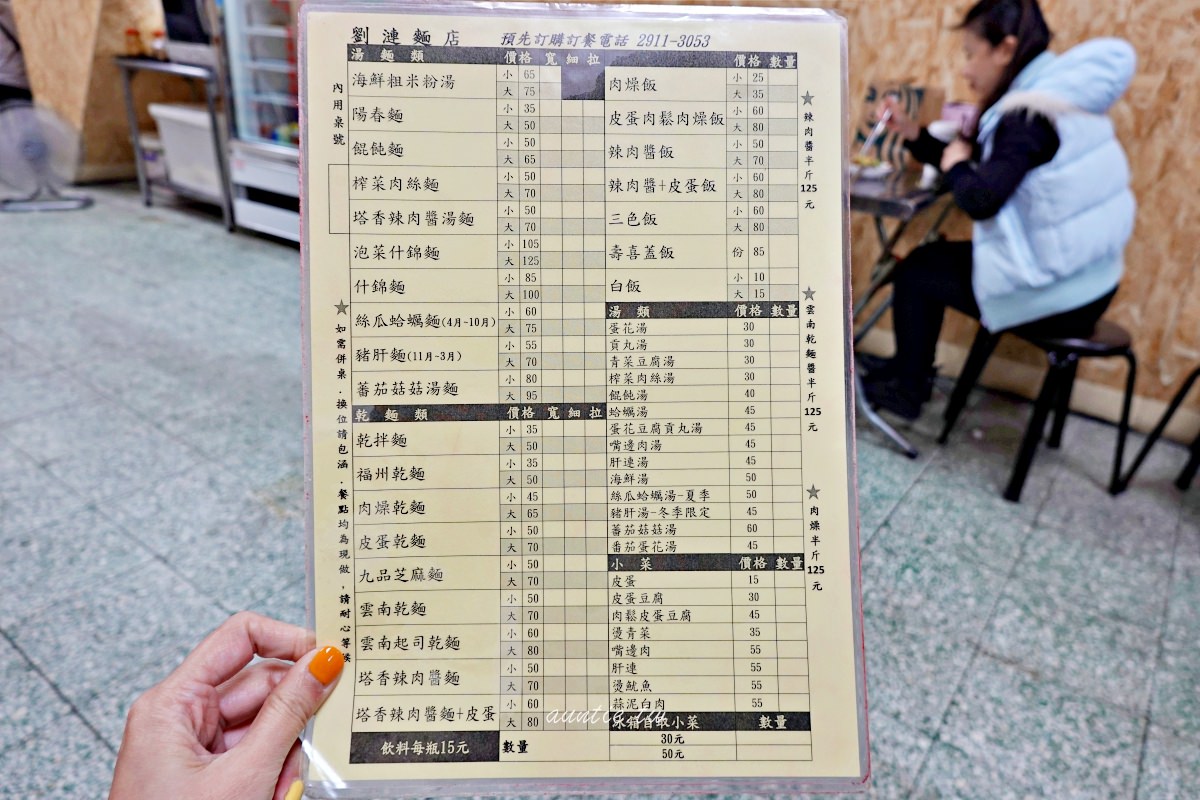 劉漣麵店 預先訂購訂餐電話 2911-3053
內用桌號
湯麵類 價格 寬 細 拉
海鮮粗米粉湯 小 65 大 75
陽春麵 小 35 大 50
餛飩麵 小 50 大 65
榨菜肉絲麵 小 50 大 70
塔香辣肉醬湯麵 小 50 大 70
泡菜什錦麵 小 105 大 125
什錦麵 小 85 大 100
絲瓜蛤蠣麵(4月~10月) 小 60 大 75
豬肝麵(11月~3月) 小 55 大 70
蕃茄菇菇湯麵 小 80 大 95
乾麵類 價格 寬 細 拉
乾拌麵 小 35 大 50
福州乾麵 小 35 大 50
肉燥乾麵 小 45 大 65
皮蛋乾麵 小 50 大 70
九品芝麻麵 小 50 大 70
雲南乾麵 小 50 大 70
雲南起司乾麵 小 60 大 80
塔香辣肉醬麵 小 50 大 70
塔香辣肉醬麵+皮蛋 小 60 大 80
飲料每瓶15元 數量
價格 數量
肉燥飯 小 25 大 35
皮蛋肉鬆肉燥飯 小 60 大 80
辣肉醬飯 小 50 大 70
辣肉醬+皮蛋飯 小 60 大 80
三色飯 小 60 大 80
壽喜蓋飯 份 85
白飯 小 10 大 15
湯類 價格 數量
蛋花湯 30
貢丸湯 30
青菜豆腐湯 30
榨菜肉絲湯 30
餛飩湯 40
蛤蠣湯 45
蛋花豆腐貢丸湯 45
嘴邊肉湯 45
肝連湯 45
海鮮湯 50
絲瓜蛤蠣湯-夏季 50
豬肝湯-冬季限定 45
蕃茄菇菇湯 60
番茄蛋花湯 45
小菜 價格 數量
皮蛋 15
皮蛋豆腐 30
肉鬆皮蛋豆腐 45
燙青菜 35
嘴邊肉 55
肝連 55
燙魷魚 55
蒜泥白肉 55
冰箱自取小菜 數量
30元
50元
★如需併桌.換位請包涵.餐點均為現做,請耐心等候
★辣肉醬半斤125元
★雲南乾麵醬半斤125元
★肉燥半斤125元